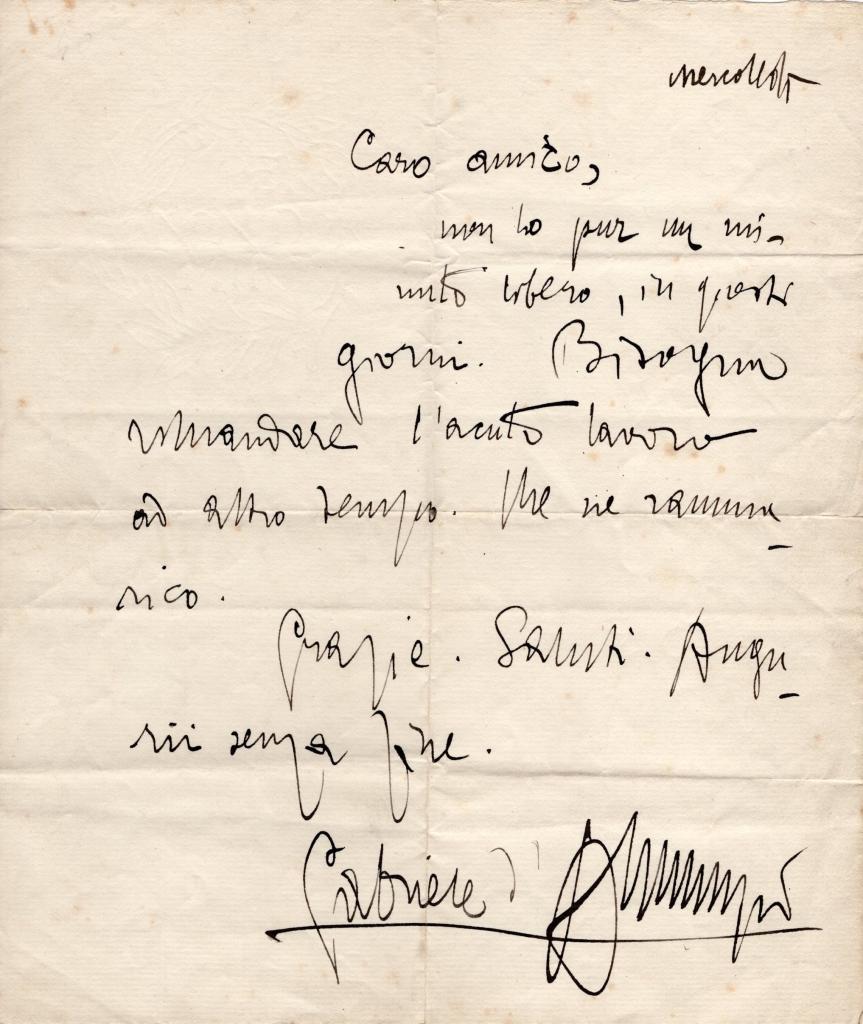 mercoledì
Caro amico,
non ho pur un mi-
nuto libero, in questi
giorni. Bisogna
rimandare l'acuto lavoro
ad altro tempo. Me ne ramma-
rico.
Grazie. Saluti. Augu-
rii senza fine.
Gabriele d'Annunzio